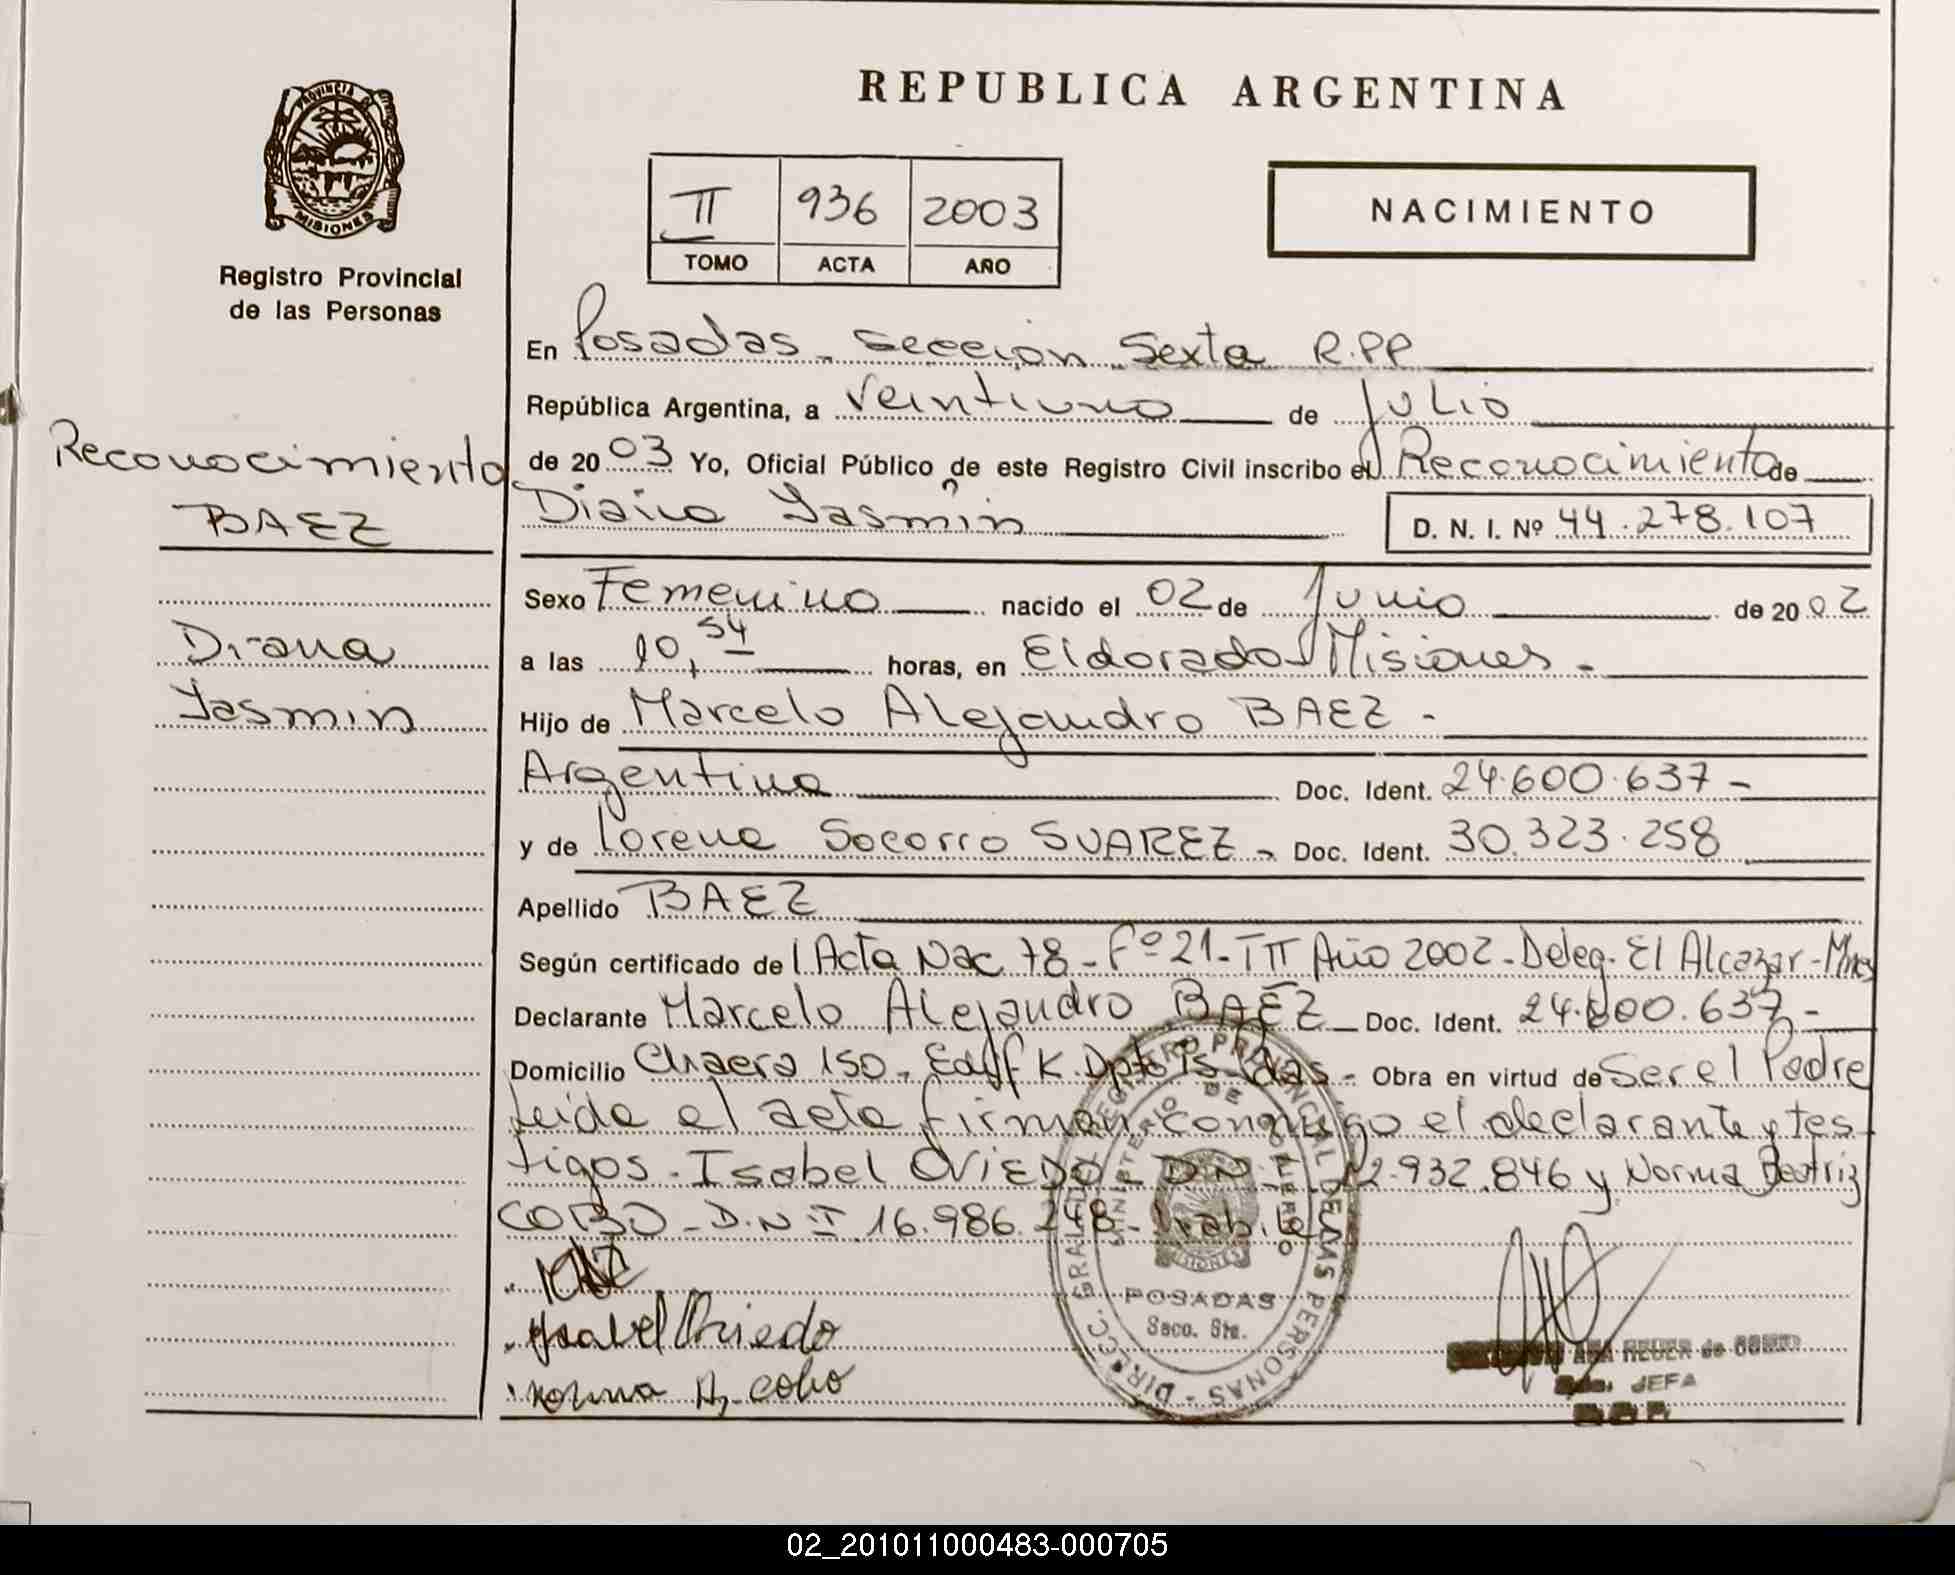 PROVINCIA DE
MISIONES
Registro Provincial
de las Personas
Reconocimiento
BAEZ
Diana
Yasmin
REPUBLICA ARGENTINA
II 936 2003
TOMO ACTA AÑO
NACIMIENTO
En Posadas - Seccion Sexta R.PP
República Argentina, a Veintiuno de Julio
de 2003 Yo, Oficial Público de este Registro Civil inscribo el Reconocimiento de
Diana Yasmin D. N. I. Nº 44.278.107
Sexo Femenino nacido el 02 de Junio de 2002
a las 10,54 horas, en Eldorado - Misiones -
Hijo de Marcelo Alejandro BAEZ -
Argentino Doc. Ident. 24.600.637 -
y de Lorena Socorro SUAREZ - Doc. Ident. 30.323.258
Apellido BAEZ
Según certificado de l Acta Nac 78 - Fº 21 - T II Año 2002 - Deleg. El Alcazar - Mnes
Declarante Marcelo Alejandro BAEZ - Doc. Ident. 24.600.637 -
Domicilio Chacra 150 - Edif K. Dpto 15 Pdas - Obra en virtud de Ser el Padre
Leida el acta firman conmigo el declarante y tes
tigos - Isabel OVIEDO - D.N.I. 12.932.846 y Norma Beatriz
COBO - D.N.I 16.986.248 - habiles
Isabel Oviedo
Norma B. cobo
DIRECC. GRAL. DEL REGISTRO PROVINCIAL DE LAS PERSONAS
MINISTERIO DE GOBIERNO
POSADAS
Secc. Sta.
ANA REUER de
JEFA
02_201011000483-000705